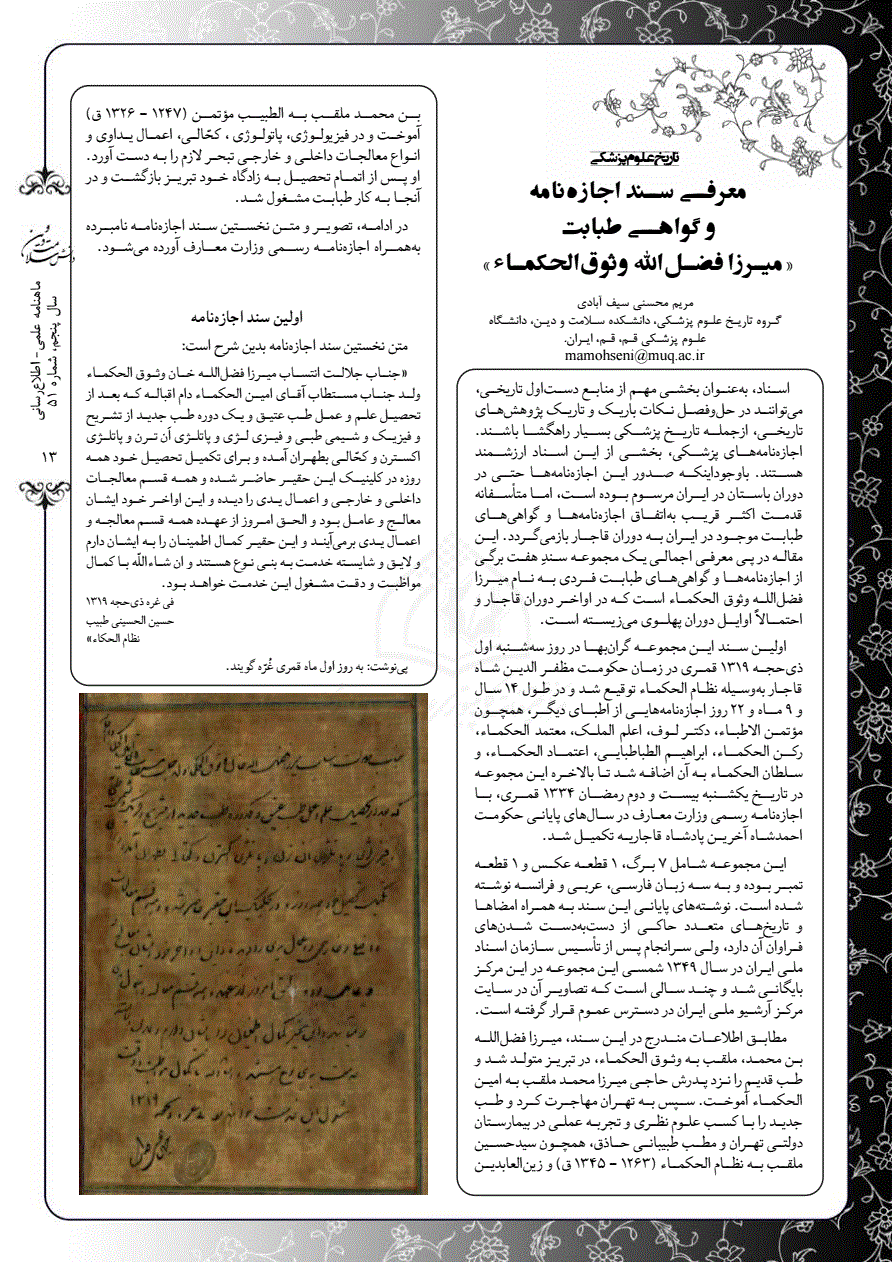 تاریخ علوم پزشکی
معرفی سند اجازه‌نامه
و گواهی طبابت
«میرزا فضل‌الله وثوق‌الحکماء»
مریم محسنی سیف آبادی
گروه تاریخ علوم پزشکی، دانشکده سلامت و دین، دانشگاه
علوم پزشکی قم، قم، ایران.
mamohseni@muq.ac.ir
اسناد، به‌عنوان بخشی مهم از منابع دست‌اول تاریخی،
می‌توانند در حل‌وفصل نکات باریک و تاریک پژوهش‌های
تاریخی، ازجمله تاریخ پزشکی بسیار راهگشا باشند.
اجازه‌نامه‌های پزشکی، بخشی از این اسناد ارزشمند
هستند. باوجوداینکه صدور این اجازه‌نامه‌ها حتی در
دوران باستان در ایران مرسوم بوده است، اما متأسفانه
قدمت اکثر قریب به‌اتفاق اجازه‌نامه‌ها و گواهی‌های
طبابت موجود در ایران به دوران قاجار بازمی‌گردد. این
مقاله در پی معرفی اجمالی یک مجموعه سندِ هفت برگی
از اجازه‌نامه‌ها و گواهی‌های طبابت فردی به نام میرزا
فضل‌الله وثوق الحکماء است که در اواخر دوران قاجار و
احتمالاً اوایل دوران پهلوی می‌زیسته است.
اولین سند این مجموعه گران‌بها در روز سه‌شنبه اول
ذی‌حجه ۱۳۱۹ قمری در زمان حکومت مظفر الدین شاه
قاجار به‌وسیله نظام الحکماء توقیع شد و در طول ۱۴ سال
و ۹ ماه و ۲۲ روز اجازه‌نامه‌هایی از اطبای دیگر، همچون
مؤتمن الاطباء، دکتر لوف، اعلم الملک، معتمد الحکماء،
رکن الحکماء، ابراهیم الطباطبایی، اعتماد الحکماء، و
سلطان الحکماء به آن اضافه شد تا بالاخره این مجموعه
در تاریخ یکشنبه بیست و دوم رمضان ۱۳۳۴ قمری، با
اجازه‌نامه رسمی وزارت معارف در سال‌های پایانی حکومت
احمدشاه آخرین پادشاه قاجاریه تکمیل شد.
این مجموعه شامل ۷ برگ، ۱ قطعه عکس و ۱ قطعه
تمبر بوده و به سه زبان فارسی، عربی و فرانسه نوشته
شده است. نوشته‌های پایانی این سند به همراه امضاها
و تاریخ‌های متعدد حاکی از دست‌به‌دست شدن‌های
فراوان آن دارد، ولی سرانجام پس از تأسیس سازمان اسناد
ملی ایران در سال ۱۳۴۹ شمسی این مجموعه در این مرکز
بایگانی شد و چند سالی است که تصاویر آن در سایت
مرکز آرشیو ملی ایران در دسترس عموم قرار گرفته است.
مطابق اطلاعات مندرج در این سند، میرزا فضل‌الله
بن محمد، ملقب به وثوق الحکماء، در تبریز متولد شد و
طب قدیم را نزد پدرش حاجی میرزا محمد ملقب به امین
الحکماء آموخت. سپس به تهران مهاجرت کرد و طب
جدید را با کسب علوم نظری و تجربه عملی در بیمارستان
دولتی تهران و مطب طبیبانی حاذق، همچون سیدحسین
ملقب به نظام الحکماء (۱۲۶۳ – ۱۳۴۵ ق) و زین‌العابدین
بن محمد ملقب به الطبیب مؤتمن (۱۲۴۷ – ۱۳۲۶ ق)
آموخت و در فیزیولوژی، پاتولوژی ، کحّالی، اعمال یداوی و
انواع معالجات داخلی و خارجی تبحر لازم را به دست آورد.
او پس از اتمام تحصیل به زادگاه خود تبریز بازگشت و در
آنجا به کار طبابت مشغول شد.
در ادامه، تصویر و متن نخستین سند اجازه‌نامه نامبرده
به‌همراه اجازه‌نامه رسمی وزارت معارف آورده می‌شود.
اولین سند اجازه‌نامه
متن نخستین سند اجازه‌نامه بدین شرح است:
«جناب جلالت انتساب میرزا فضل‌الله خان وثوق الحکماء
ولد جناب مستطاب آقای امین الحکماء دام اقباله که بعد از
تحصیل علم و عمل طب عتیق و یک دوره طب جدید از تشریح
و فیزیک و شیمی طبی و فیزی لژی و پاتلژی آن ترن و پاتلژی
اکسترن و کحّالی بطهران آمده و برای تکمیل تحصیل خود همه
روزه در کلینیک این حقیر حاضر شده و همه قسم معالجات
داخلی و خارجی و اعمال یدی را دیده و این اواخر خود ایشان
معالج و عامل بود و الحق امروز از عهده همه قسم معالجه و
اعمال یدی برمی‌آیند و این حقیر کمال اطمینان را به ایشان دارم
و لایق و شایسته خدمت به بنی نوع هستند و ان شاءاللّه با کمال
مواظبت و دقت مشغول این خدمت خواهد بود.
فی غره ذی‌حجه ۱۳۱۹
حسین الحسینی طبیب
نظام الحکاء»
پی‌نوشت: به روز اول ماه قمری غُرّه گویند.
ماهنامه علمی - اطلاع‌رسانی
سال پنجم، شماره ۵۱
۱۳